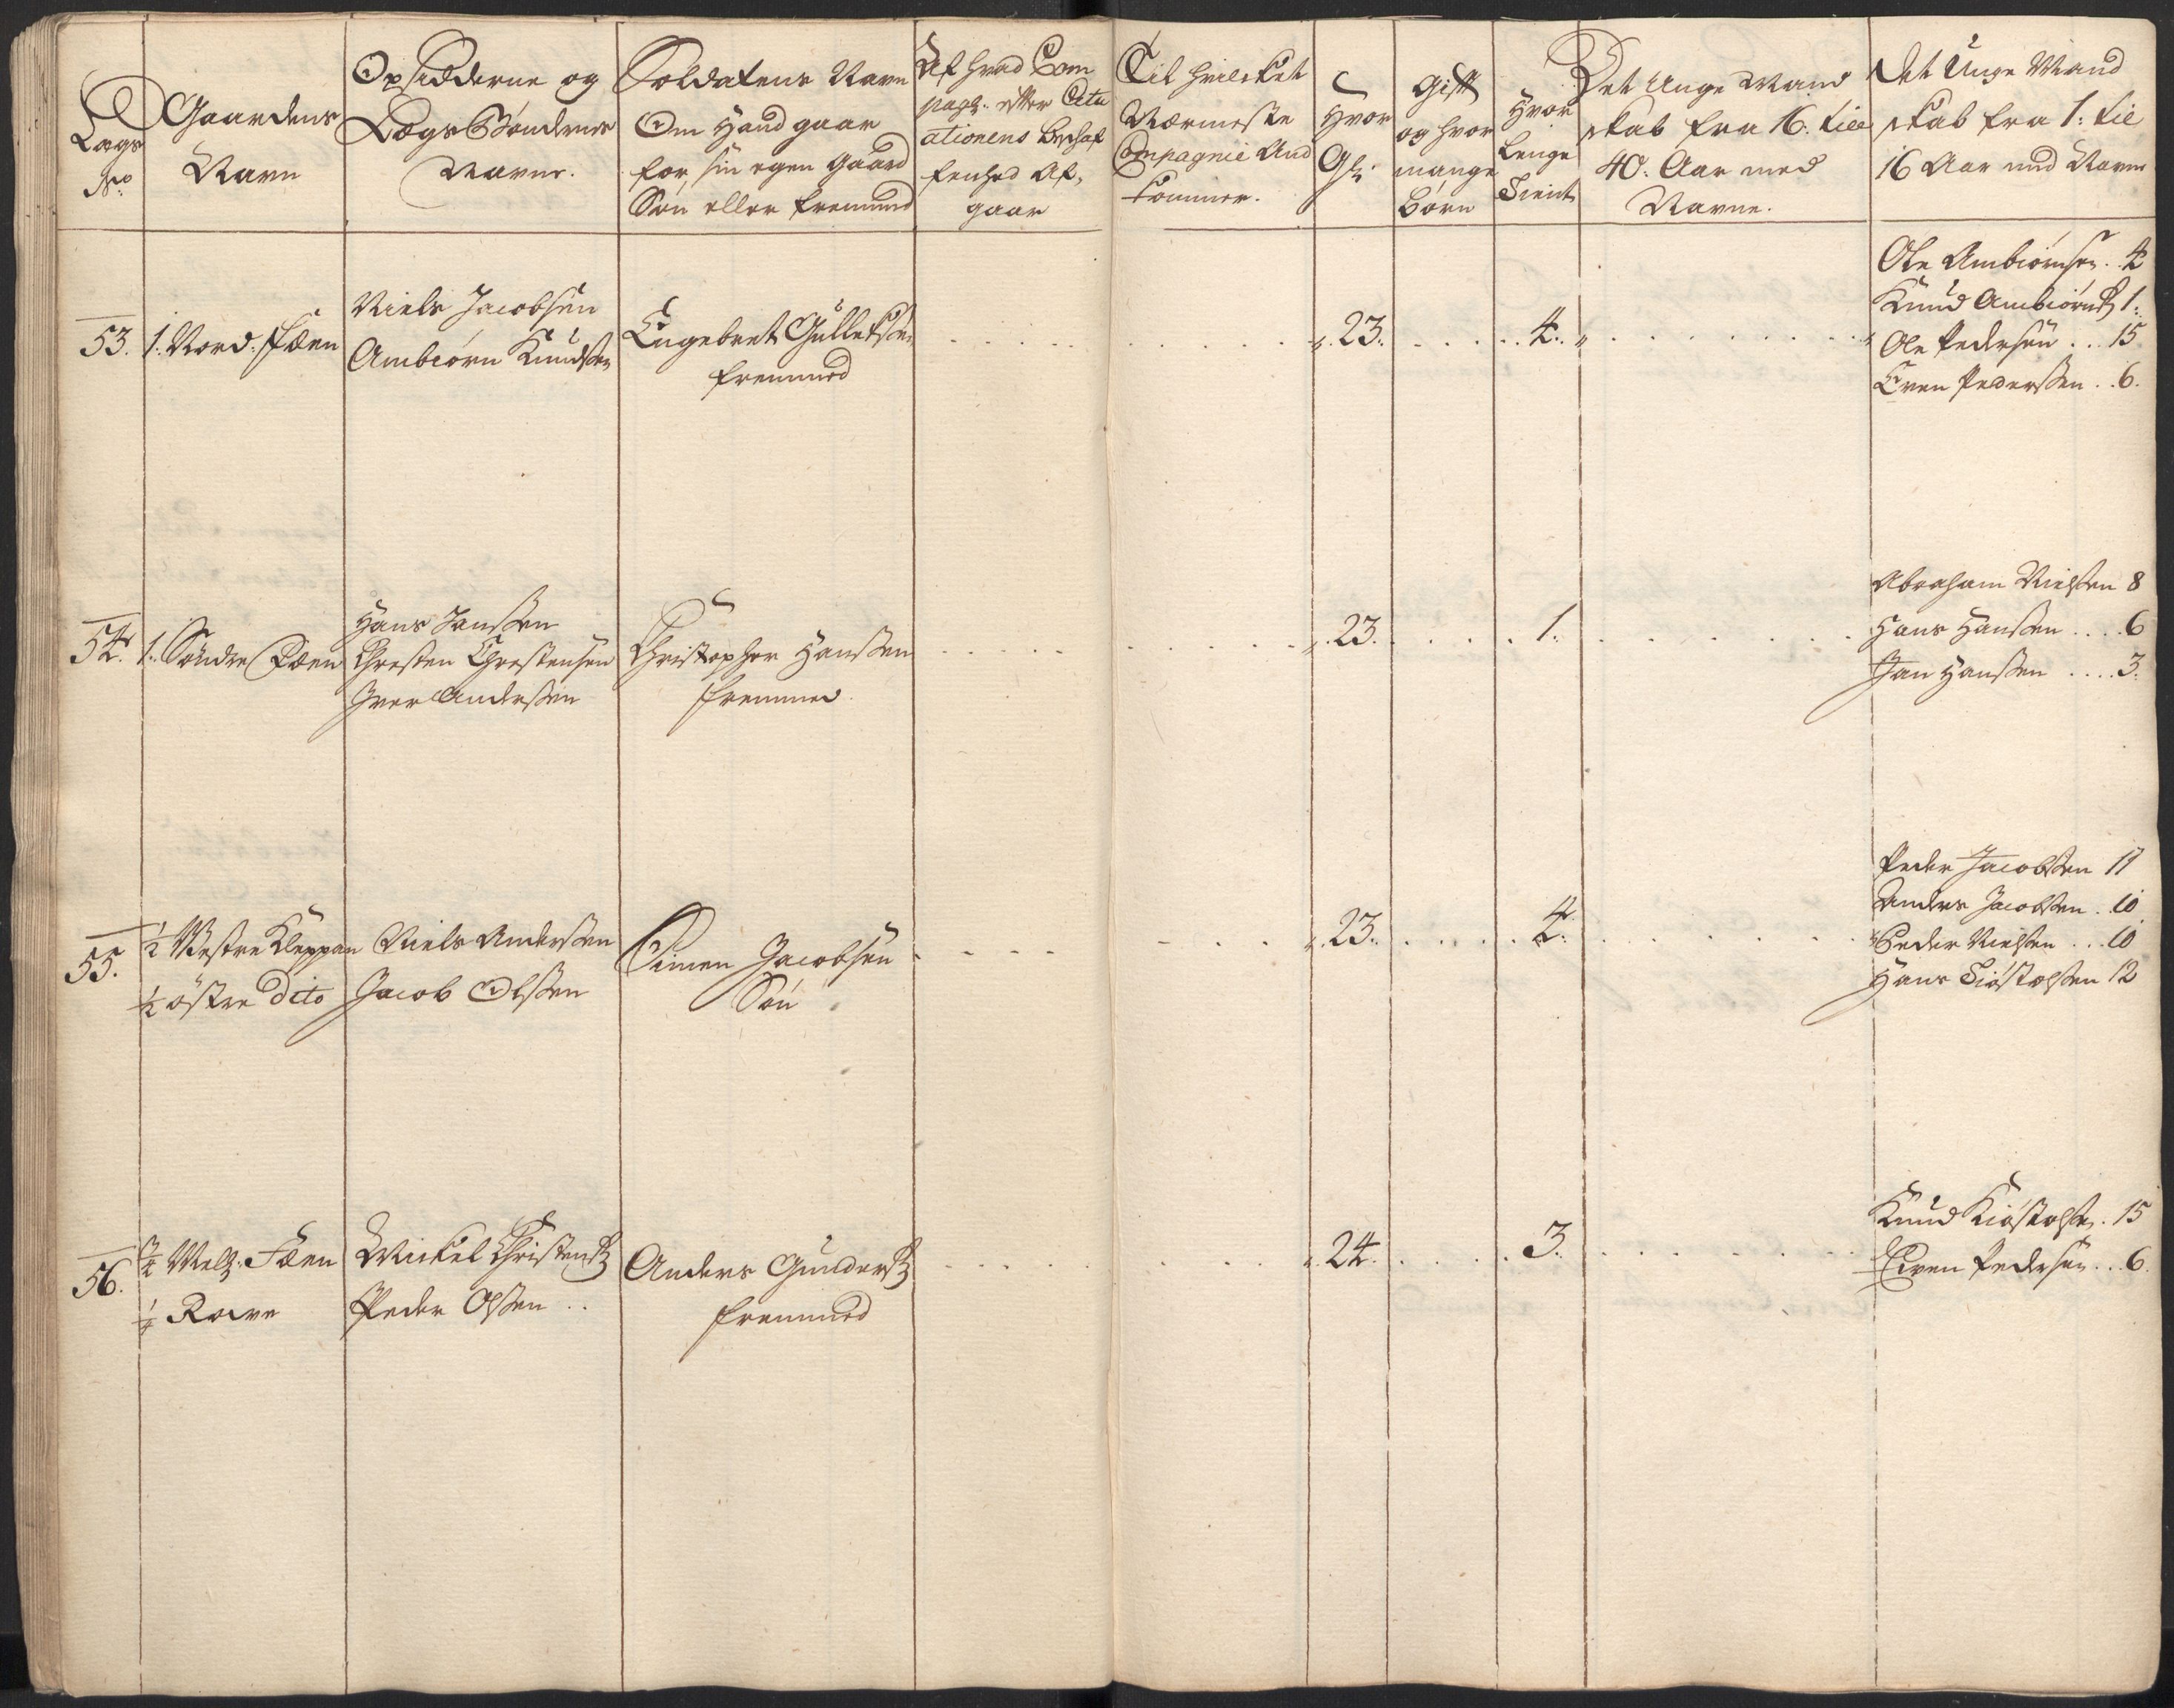 Lægs
No
Gaardens
Navn
Opsidderne og
LægsBøndernes
Navne.
Soldatens Navn
Om Hand gaar
for sin egen Gaard
Søn eller fremmed
Af hvad Com
pagn. efter Situ
ationens beskaf
fenhed Af,
gaar
Til hvilcket
Nærmeste
Compagnie And
kommer.
Hvor
Gl:
Gift
og hvor
mange
børn
Hvor
lenge
Tient
Det Unge Mand
skab fra 16. till
40. Aar med
Navne.
Det Unge Mand
skab fra 1. til
16 Aar med Navne
53. 1. Nord: Fæen
Niels Jacobsen
Ambiørn Knudsen
Engebret Gulleksen
fremmed
23. 4.
Ole Ambiørnsen. 4
Knud Ambiørns. 1.
Ole Pedersen .. 15
Even Pederssen .. 6.
54. 1. Søndre Fæen
Hans Janssen
Chresten Chrestensen
Iver Anderssen
Christopher Hanssen
fremmed
23. 1.
Abraham Nielssen 8
Hans Hanssen .... 6
Jan Hanssen .... 3.
55.
½ Westre Kleppan
½ östre Dito
Niels Anderssen
Jacob Olssen
Simen Jacobsen
Søn
23. 4.
Peder Jacobssen 11
Anders Jacobssen. 10.
Peder Nielssen ... 10
Hans Kiøstolssen 12
56.
¾ Mels: Fæen
¼ Rowe
Mickel Christens.
Peder Olssen ..
Anders Gunders.
fremmed
24. 3.
Knud Kiøstolss. 15
Even Pedersen ... 6.